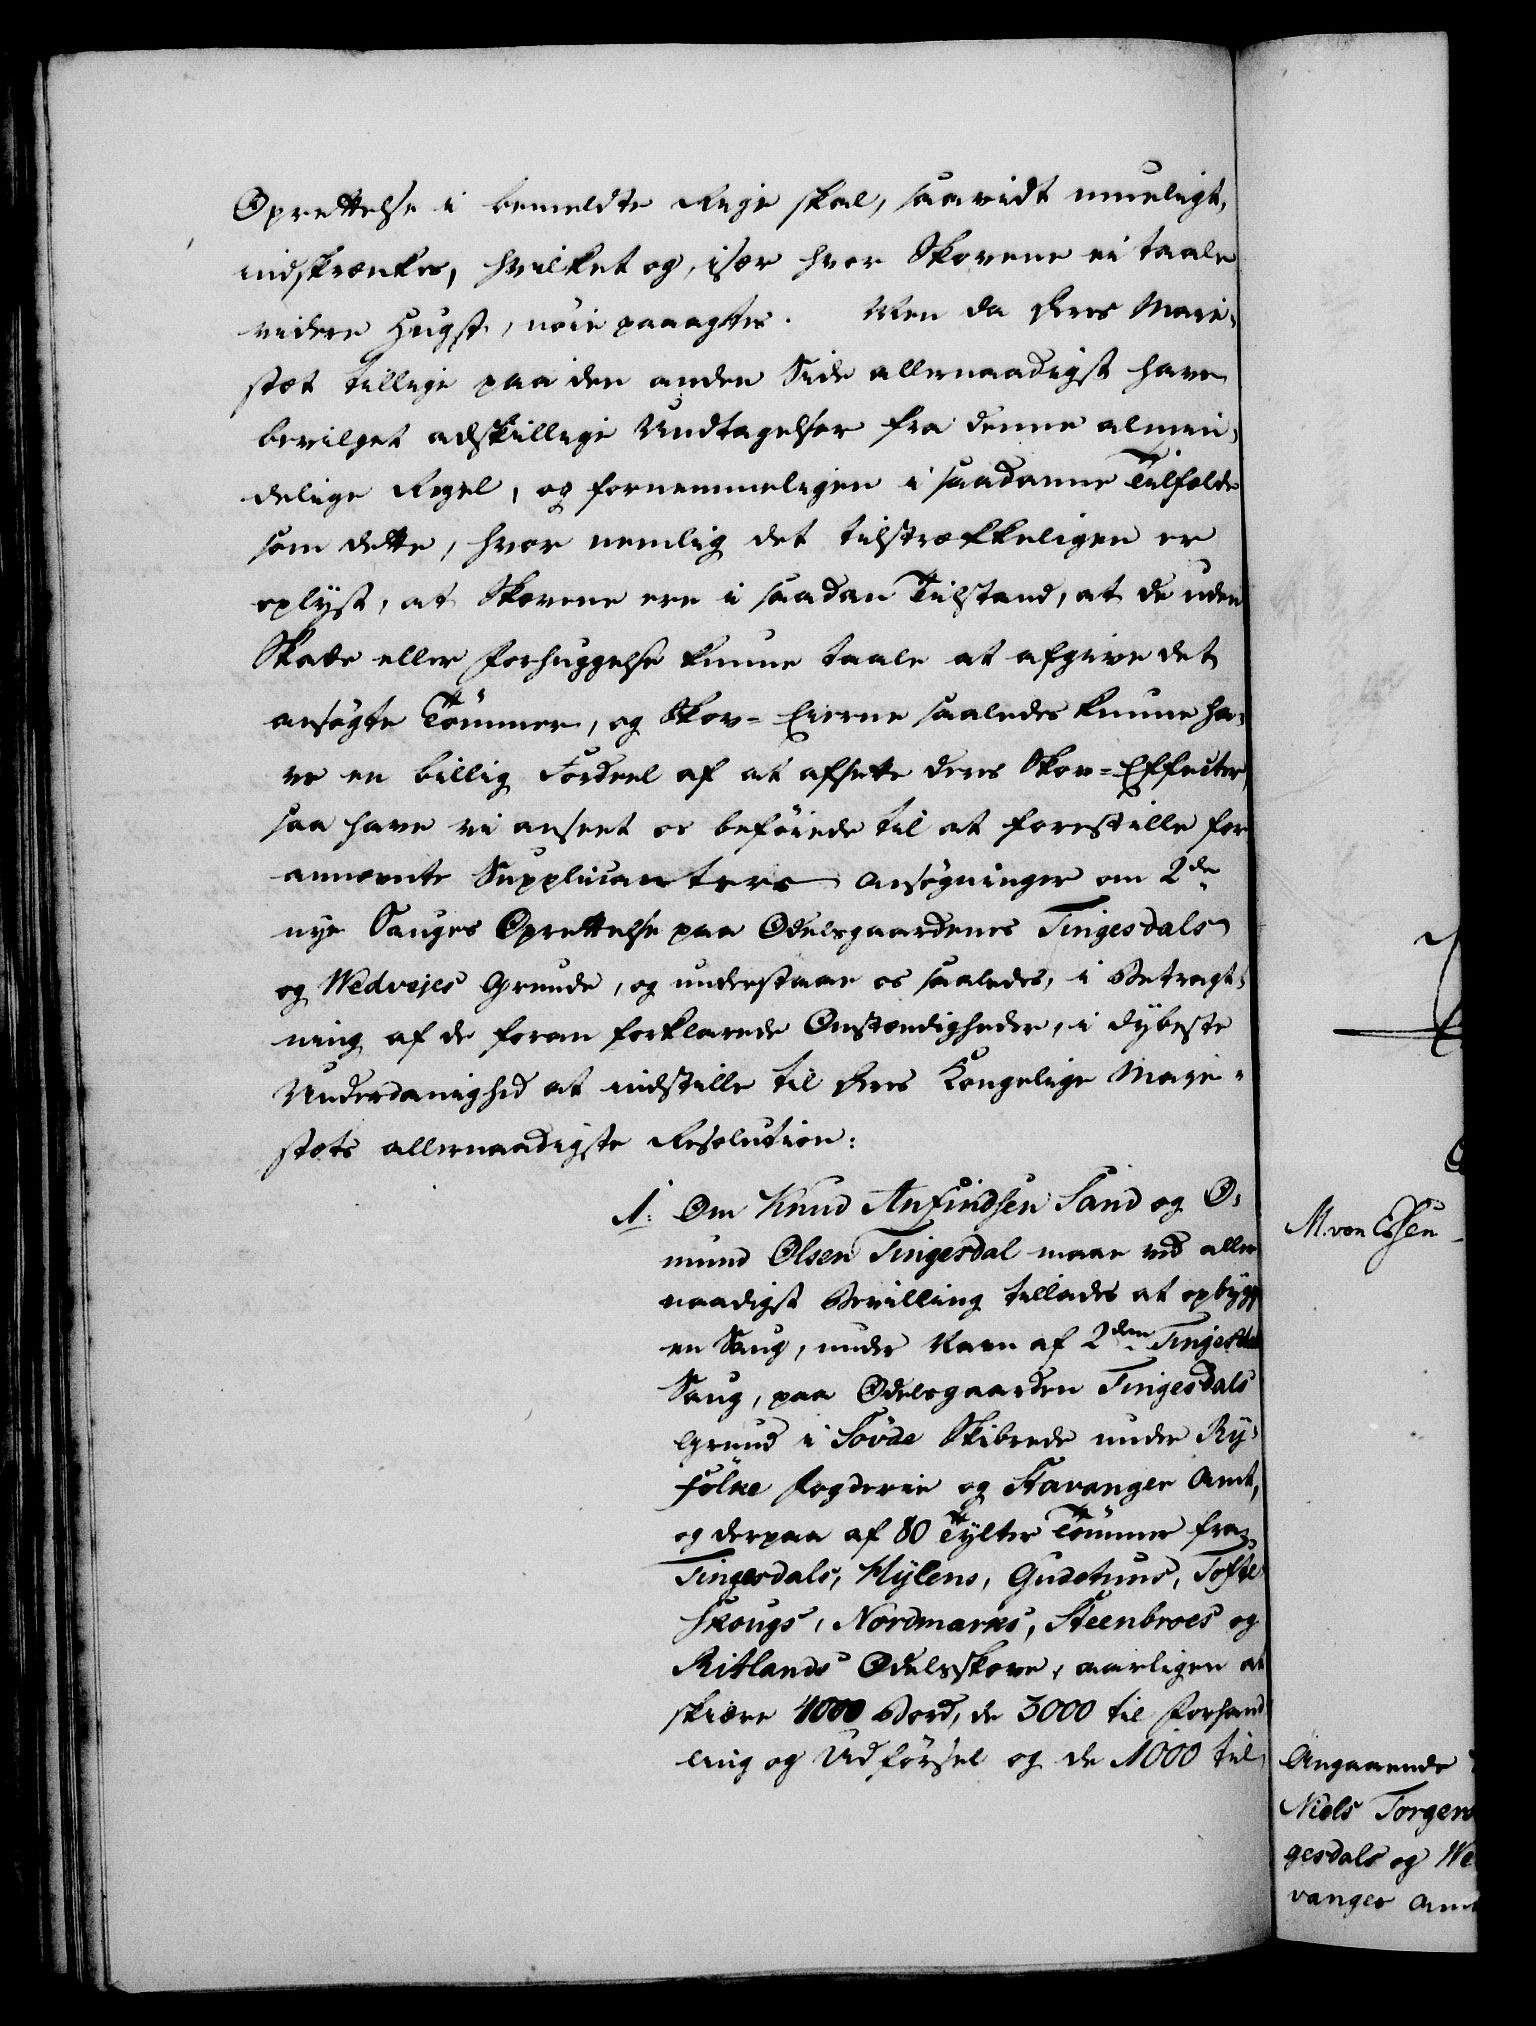 Oprettelse i bemeldte Rige skal, saavidt mueligt,
indskrænkes, hvilket og, især hvor Skovene ei taale
videre Hugst, nöie paaagtes. Men da Deres Maje-
stæt tillige paa den anden Side allernaadigst have
bevilget adskillige Undtagelser fra denne almin-
delige Regel, og fornemmeligen i saadanne Tilfælde
som dette, hvor nemlig det tilstrækkeligen er
oplyst, at Skovene ere i saadan Tilstand, at de uden
Skade eller Forhuggelse kunne taale at afgive det
ansögte Tömmer, og Skov-Eierne saaledes kunne ha-
ve en billig Fordeel af at afsette deres Skov-Effecter,
saa have vi anseet os beföiede til at forestille for
annævnte Supplicanters Ansögninger om 2de
nye Sauges Oprettelse paa Odelsgaardenes Tingesdals
og Wedvejes Grunde, og understaae os saaledes, i Betragt-
ning af de foran forklarede Omstændigheder, i dybeste
Underdanighed at indstille til Deres Kongelige Maje-
stæts allernaadigste Resolution:
1. Om Knud Anfindsen Sand og O-
mund Olsen Tingesdal maae ved aller
naadigst Bevilling tillades at opbygge
en Saug, under Navn af 2den Tingesdals
Saug, paa Odelsgaarden Tingesdals
Grund i Sövde Skibrede under Ry-
fölke Fogderie og Stavanger Amt,
og derpaa af 80 Tylter Tömmer fra
Tingesdals, Hylens, Gudetuns, Tofte
Skougs, Nordmarks, Steenbroes og
Ritlands Odelsskove, aarligen at
skiære 4000 Bord, de 3000 til Forhand
ling og Udförsel og de 1000 til
M. von Essen
Angaaende
Niels Torgers
gesdals og We
vanger Amt